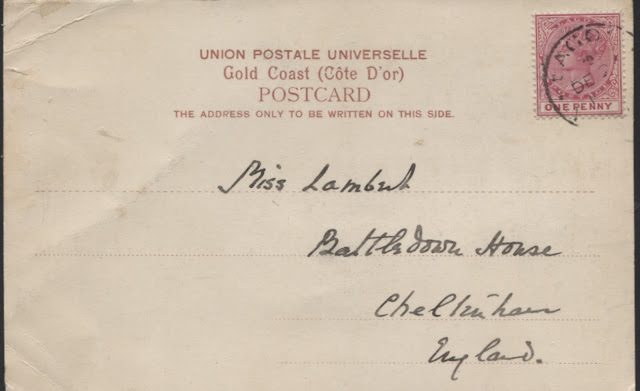 UNION POSTALE UNIVERSELLE
Gold Coast (Côte D'or)
POSTCARD
THE ADDRESS ONLY TO BE WRITTEN ON THIS SIDE.
LAGOS
DE
ONE PENNY
Miss Lambert
Battledown House
Cheltenham
England.